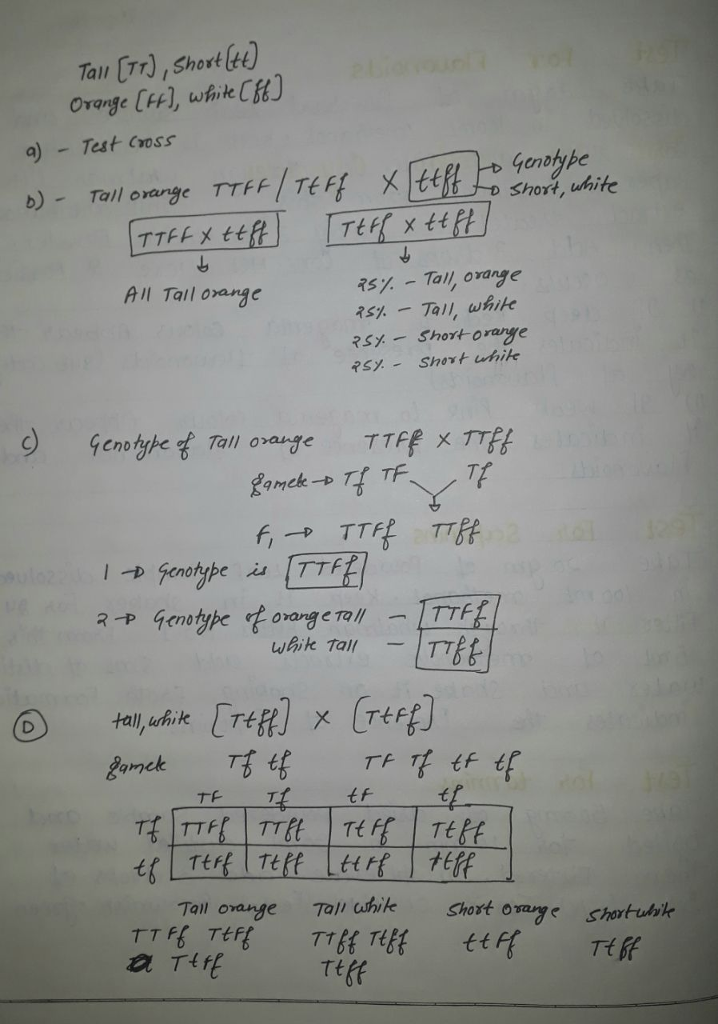 Tall [TT], Short [tt]
Orange [FF], white [ff]
a) - Test Cross
b) - Tall orange TTFF / TtFf X ttff → Genotype
→ Short, white
TTFF X ttff TtFf X ttff
All Tall orange
25% - Tall, orange
25% - Tall, white
25% - Short orange
25% - Short white
c) Genotype of Tall orange TTFf X TTff
gamete → Tf TF Tf
F1 → TTFf TTff
1 → Genotype is TTFf
2 → Genotype of orange Tall - TTFf
white Tall - TTff
D tall, white [Ttff] X [TtFf]
gamete Tf tf TF Tf tF tf
TF Tf tF tf
Tf TTFf TTff TtFf Ttff
tf TtFf Ttff ttFf ttff
Tall orange Tall white Short orange Short white
TTFf TtFf TTff Ttff ttFf Ttff
TtFf Ttff